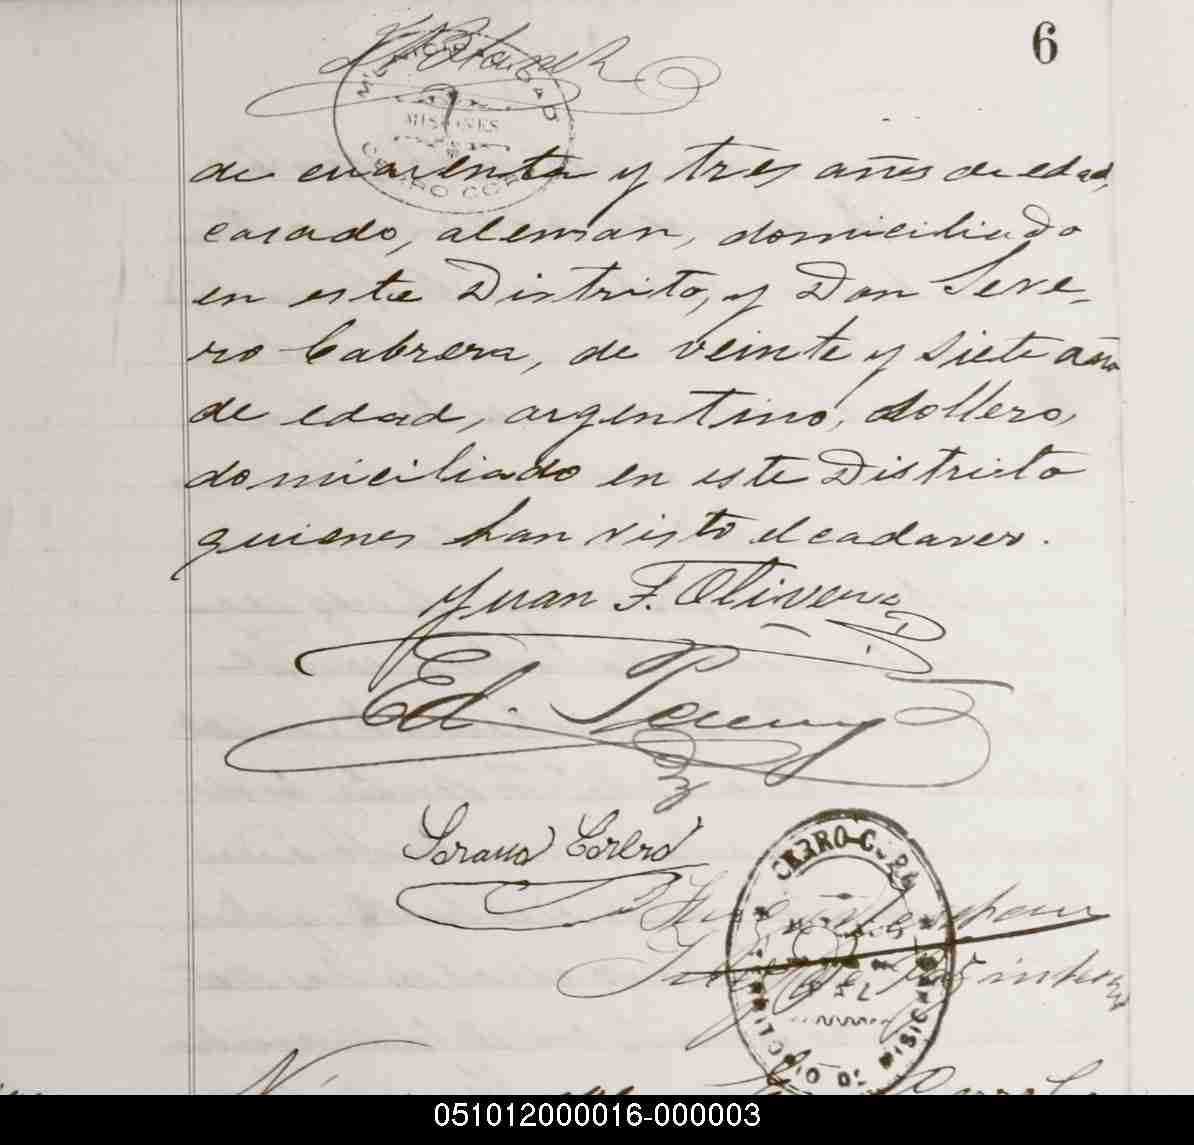 6
MISIONES
CERRO CORÁ
de cuarenta y tres años de edad,
casado, aleman, domiciliado
en este Distrito, y Don Seve-
ro Cabrera, de veinte y siete años
de edad, argentino, soltero,
domiciliado en este Distrito
quienes han visto el cadaver.
Juan F. Olivera
Ed.
CERRO-CORÁ
MISIONES
051012000016-000003